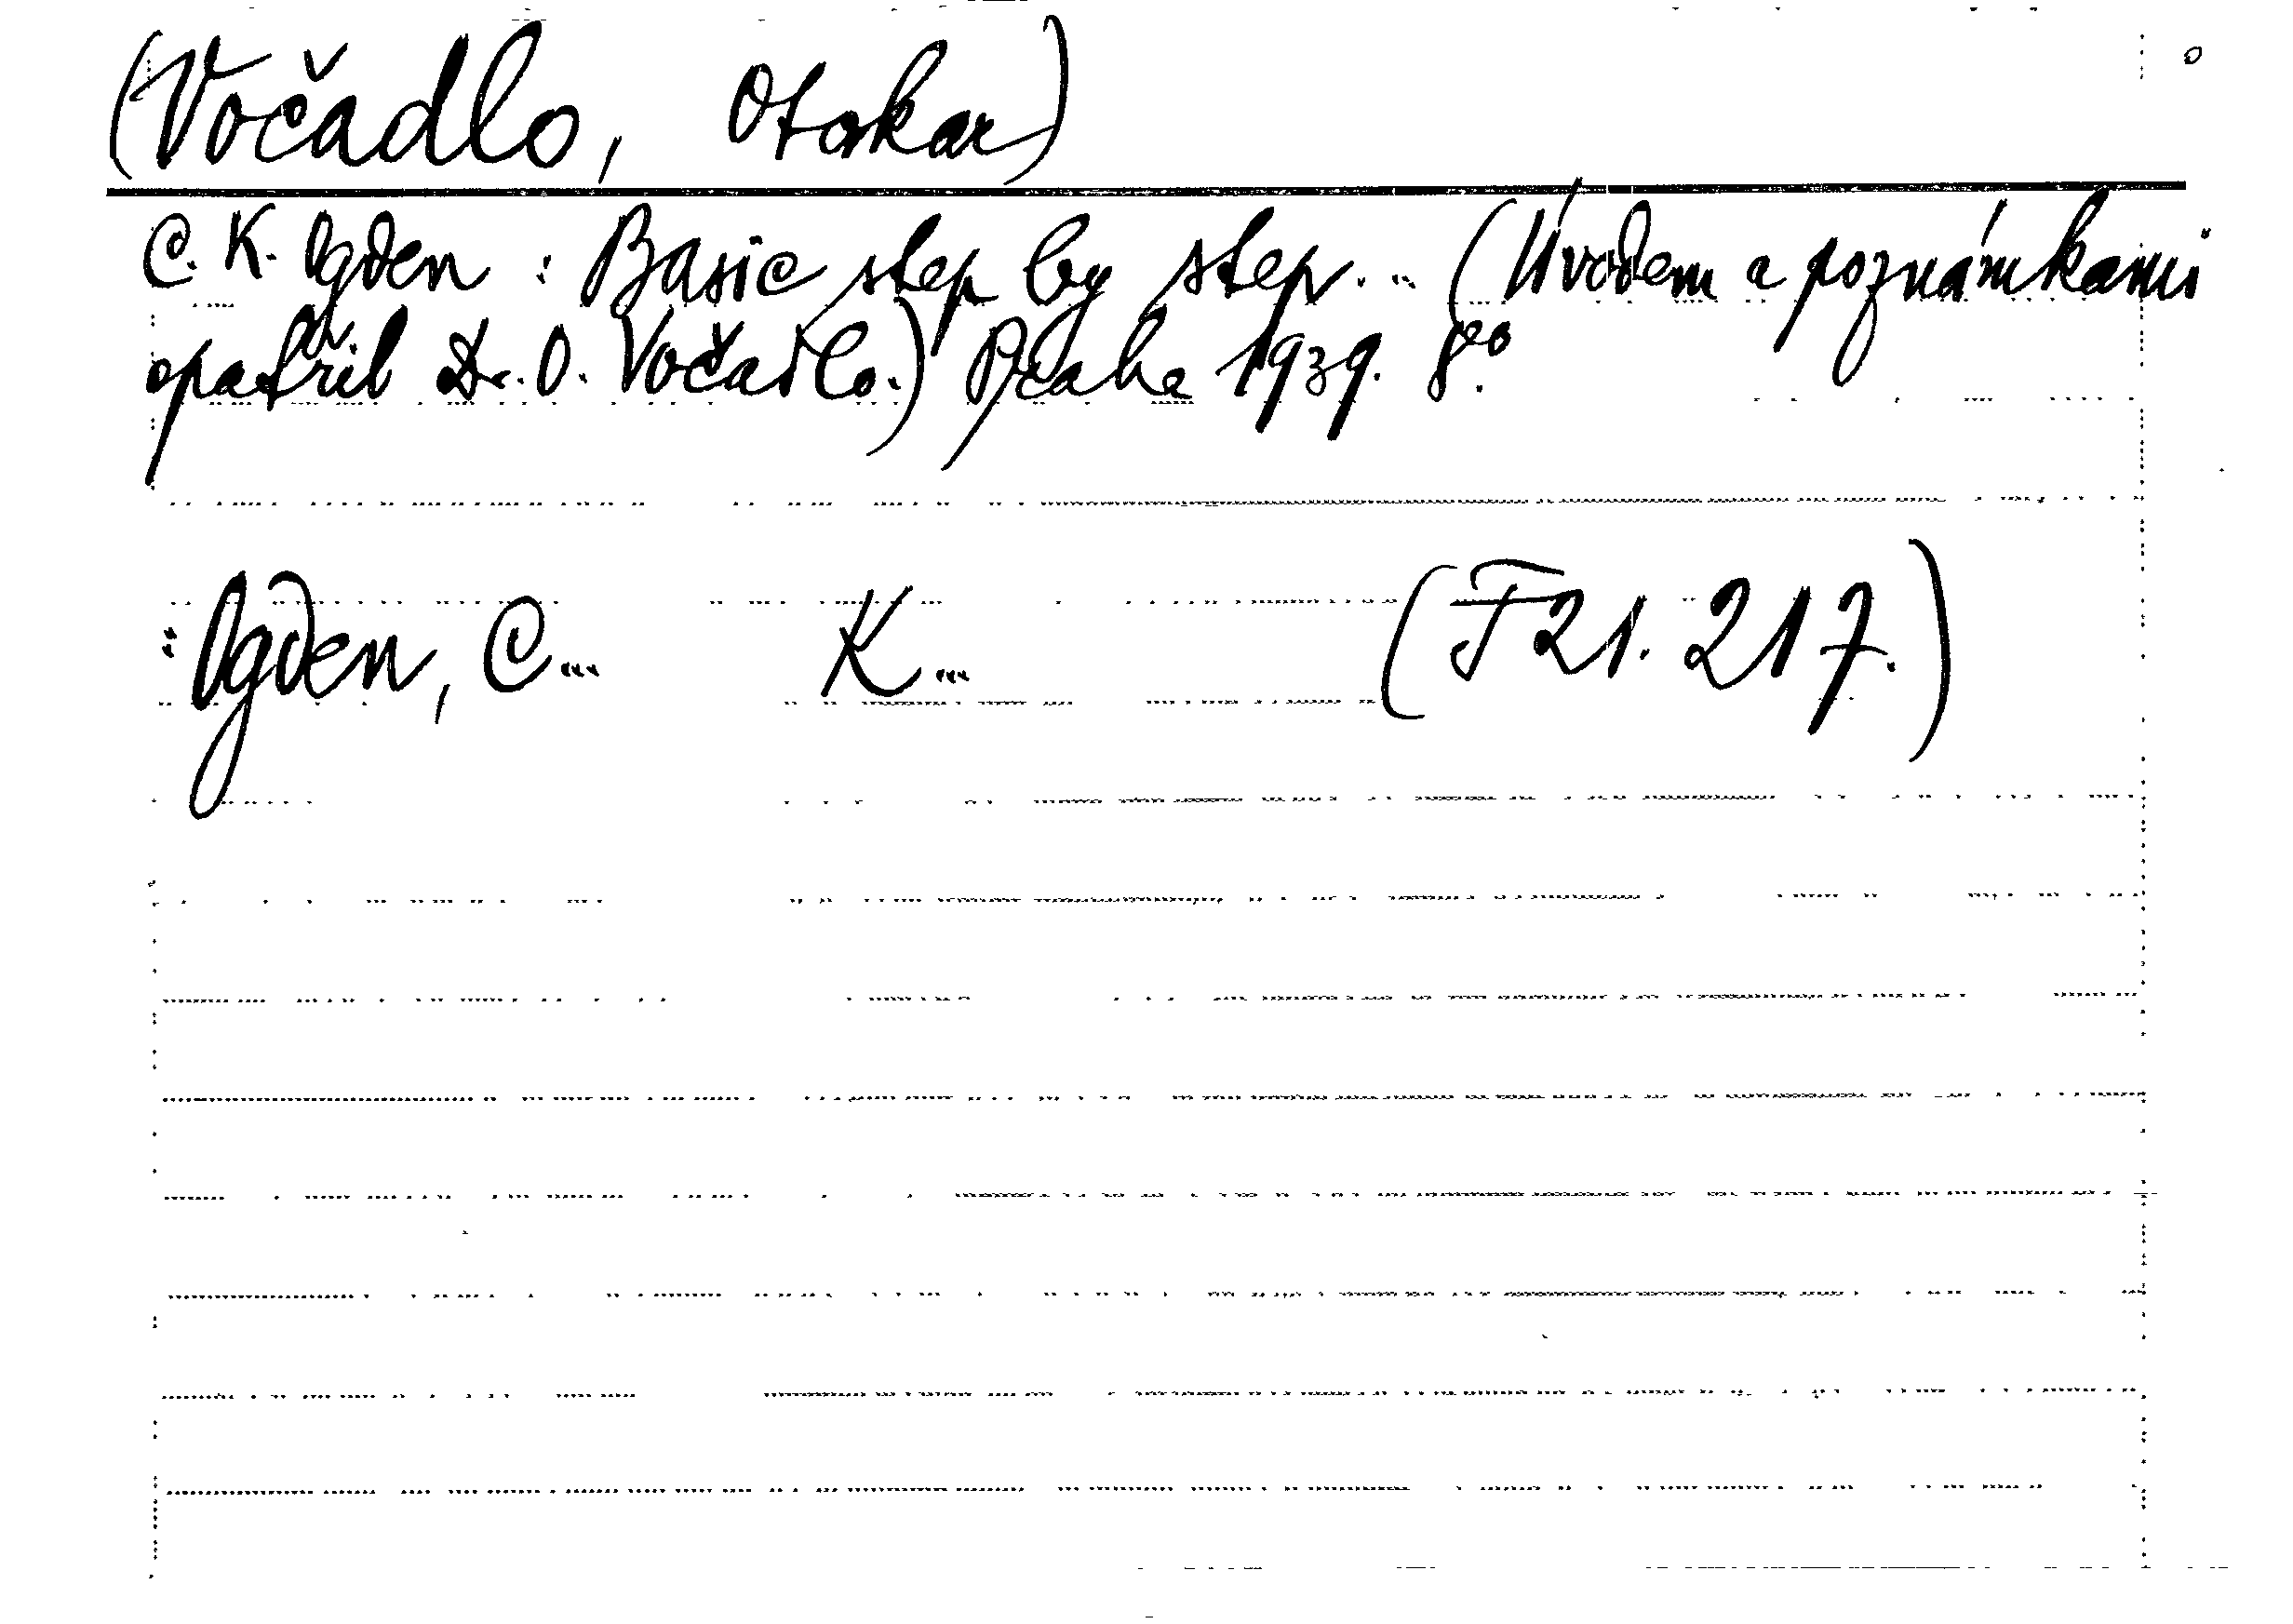 (Vočadlo, Otakar)
C. K. Ogden : Basic step by step... (Úvodem a poznámkami
opatřil Dr. O. Vočadlo.) Praha 1939. 8°
: Ogden, C... K... (F 21. 217.)